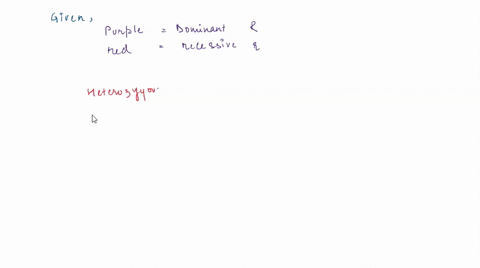 Given,
Purple = Dominant R
red = recessive r
Heterozygou